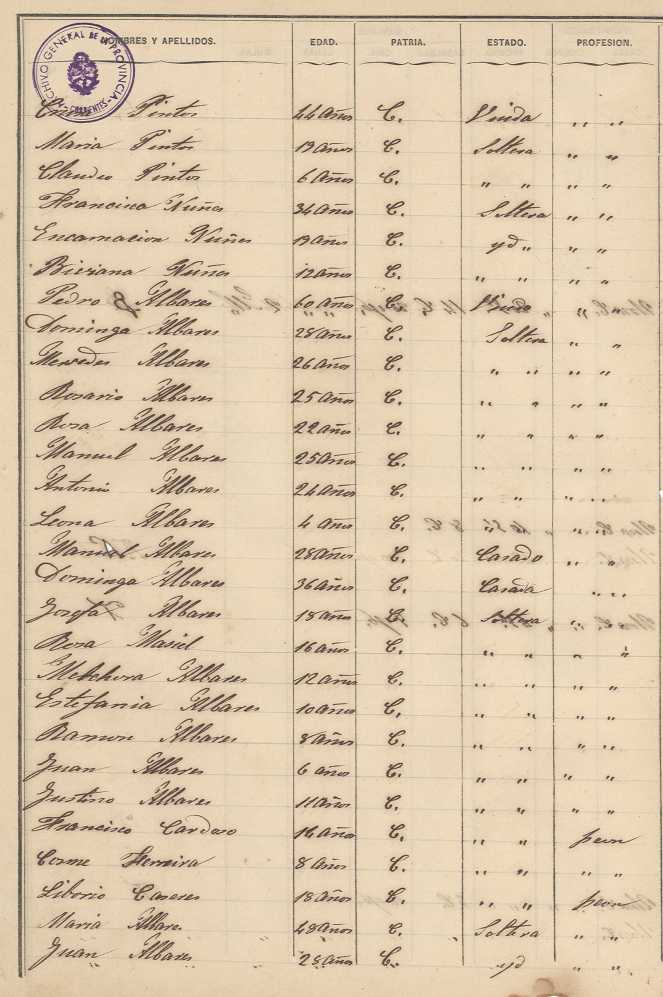 ARCHIVO GENERAL DE LA PROVINCIA
CORRIENTES
NOMBRES Y APELLIDOS. EDAD. PATRIA. ESTADO. PROFESION.
Pintos 44 años C. Viuda " "
Maria Pintos 19 años C. Soltera " "
Claudio Pintos 6 años C. " " " "
Francisca Nuñes 34 años C. Soltera " "
Encarnacion Nuñes 19 años C. yd " " "
Biviana Nuñes 12 años C. " " " "
Pedro Albares 60 años C. Viudo "
Dominga Albares 28 años C. Soltera " "
Mercedes Albares 26 años C. " " " "
Rosario Albares 25 años C. " " " "
Rosa Albares 22 años C. " " " "
Manuel Albares 25 años C. " " " "
Antonio Albares 24 años C. " " " "
Leona Albares 4 años C. " " "
Manuel Albares 28 años C. Casado " "
Dominga Albares 36 años C. Casada " "
Josefa Albares 18 años C. Soltera " "
Rosa Masiel 16 años C. " " " "
Melchora Albares 12 años C. " " " "
Estefania Albares 10 años C. " " " "
Ramon Albares 8 años C. " " " "
Juan Albares 6 años C. " " " "
Justino Albares 11 años C. " " " "
Francisco Cardoso 16 años C. " " peon
Cosme Ferreira 8 años C. " " " "
Liborio Caseres 18 años C. " " peon
Maria Albares 48 años C. Soltera " "
Juan Albares 28 años C. yd " "